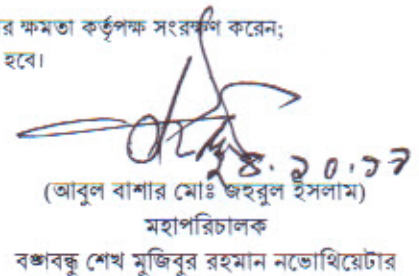 র ক্ষমতা কর্তৃপক্ষ সংরক্ষণ করেন;
হবে।
(আবুল বাশার মোঃ জহুরুল ইসলাম)
মহাপরিচালক
বঙ্গবন্ধু শেখ মুজিবুর রহমান নভোথিয়েটার